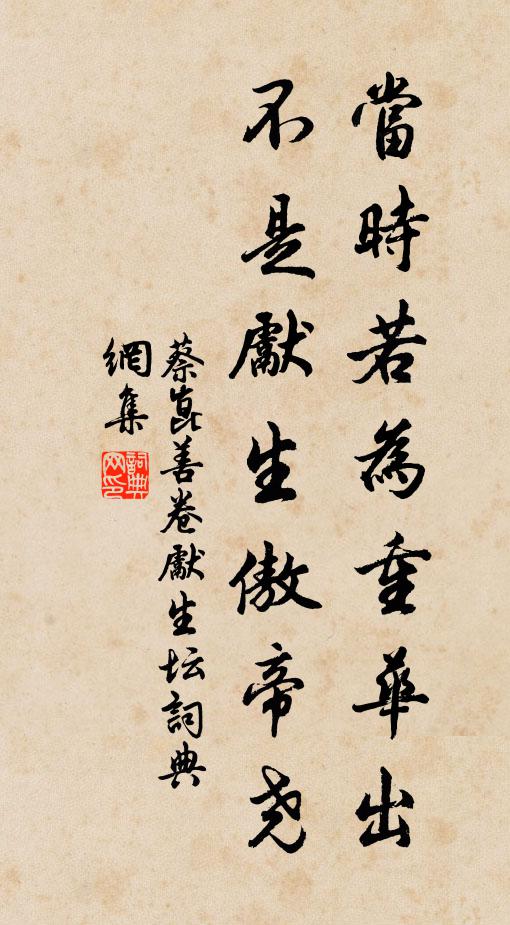 當時若為重華出
不是獻生傲帝堯
蔡崑善卷獻生坛詞典
網集
詞典網印